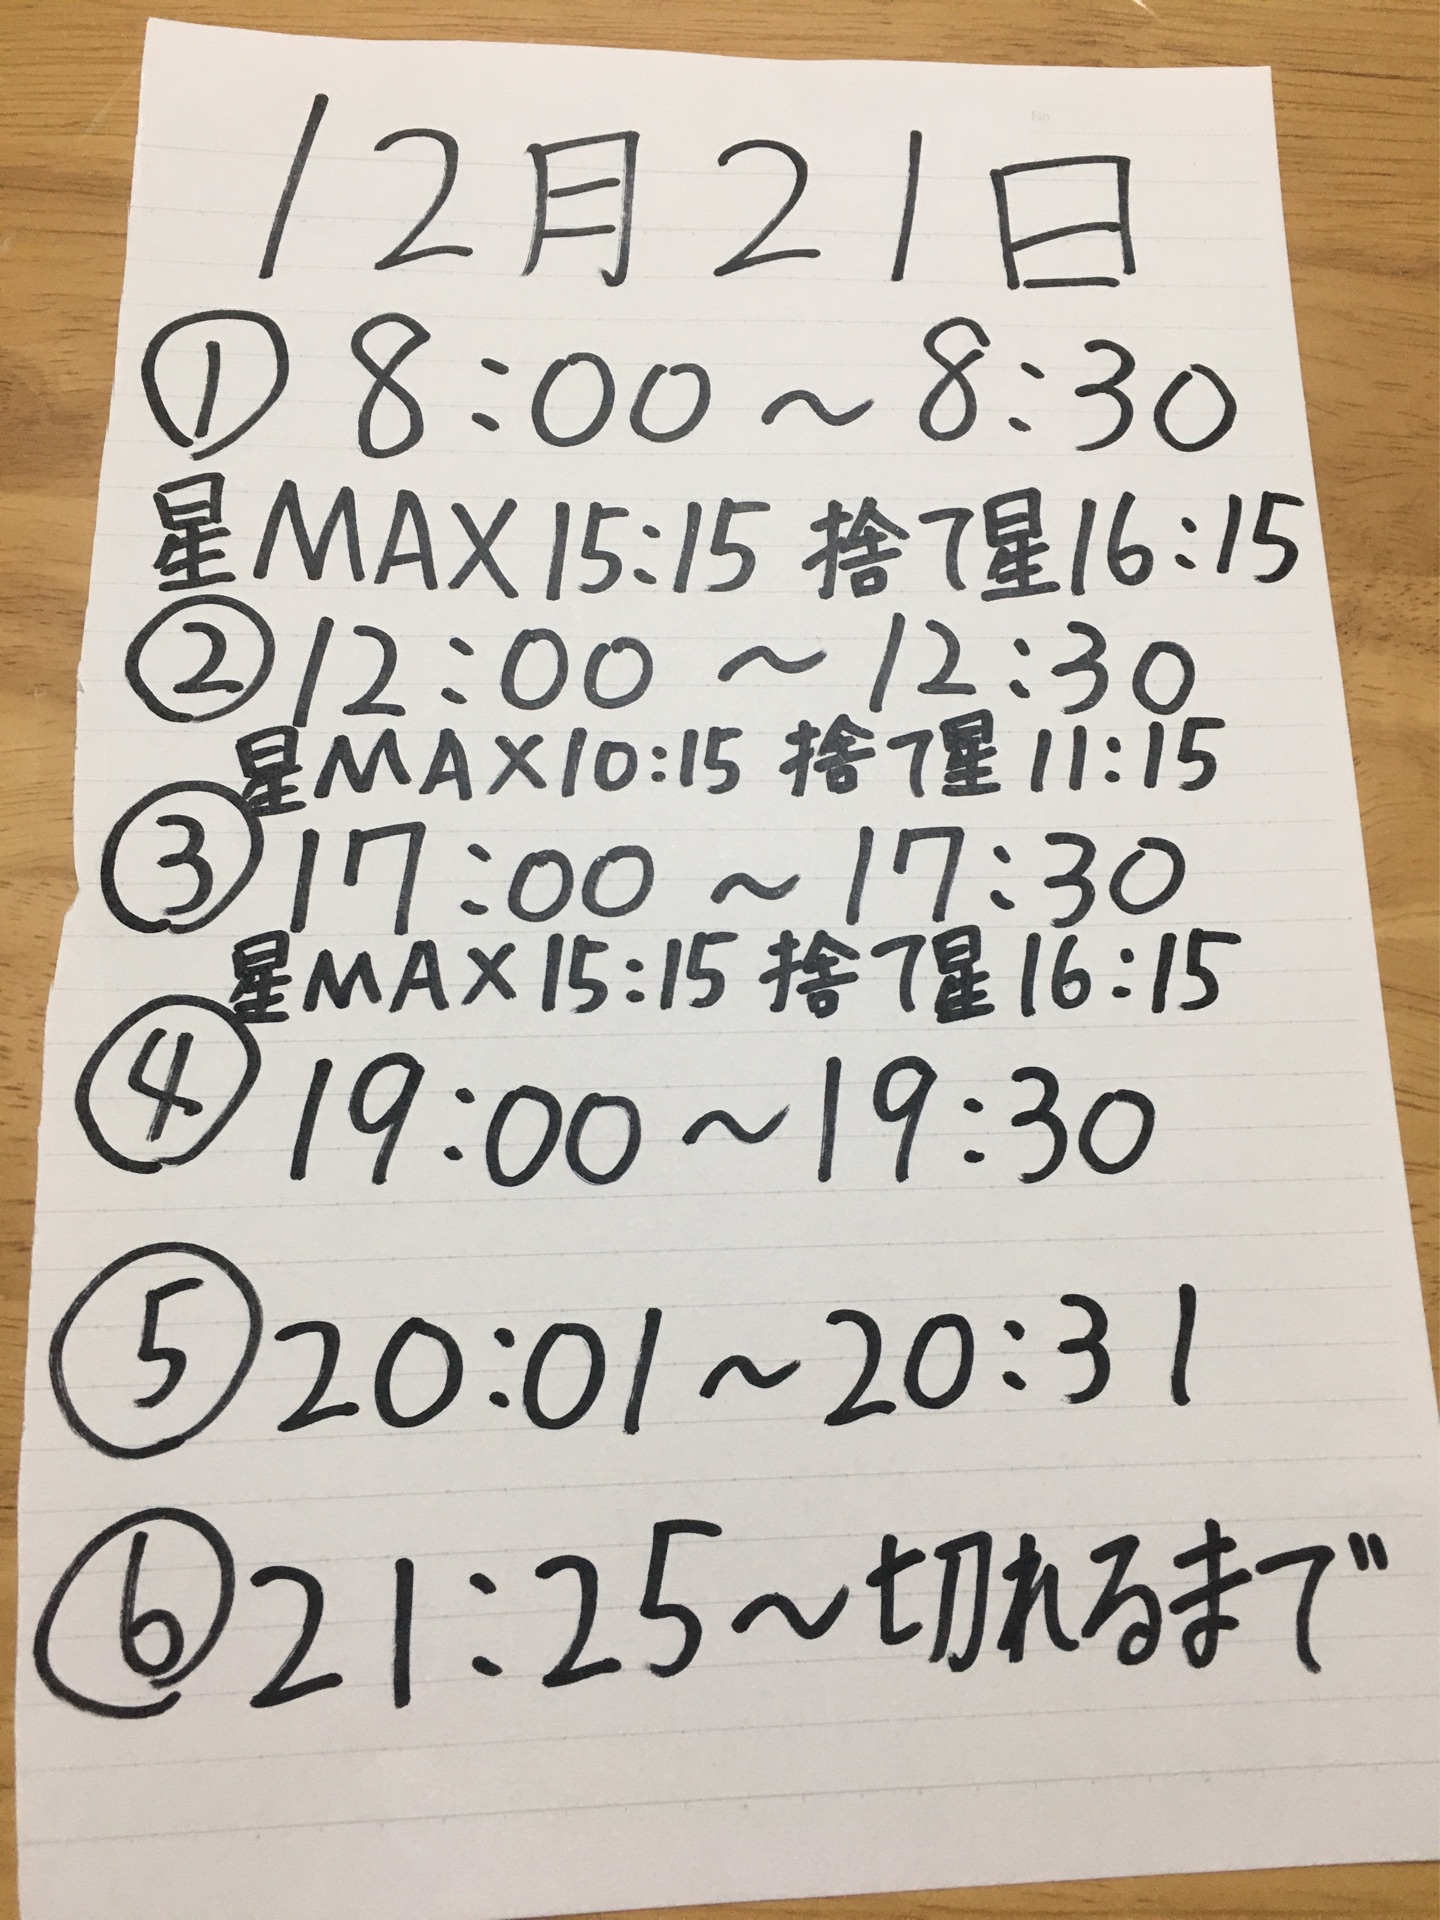 12月21日
① 8:00～8:30
星MAX15:15 捨て星16:15
② 12:00～12:30
星MAX10:15 捨て星11:15
③ 17:00～17:30
星MAX15:15 捨て星16:15
④ 19:00～19:30
⑤ 20:01～20:31
⑥ 21:25～切れるまで